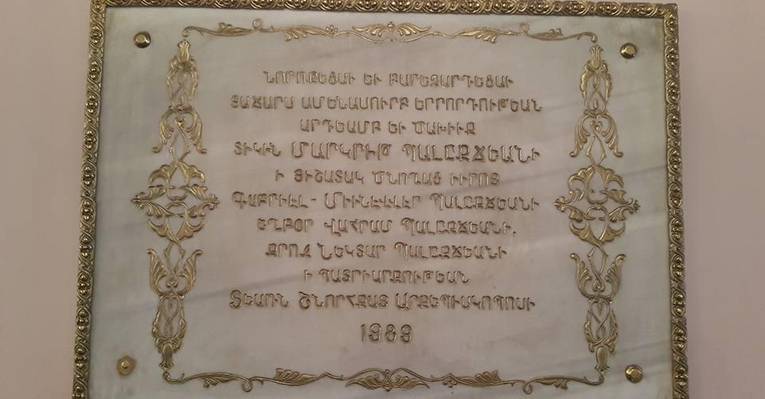 ՆՈՐՈԳԵՑԱՒ ԵՒ ԲԱՐԵԶԱՐԴԵՑԱՒ
ՏԱՃԱՐՍ ԱՄԵՆԱՍՈՒՐԲ ԵՐՐՈՐԴՈՒԹԵԱՆ
ԱՐԴԵԱՄԲ ԵՒ ԾԱԽԻՒՔ
ՏԻԿԻՆ ՄԱՐԿՐԻԹ ՊԱԼԸՔՃԵԱՆԻ
Ի ՅԻՇԱՏԱԿ ԾՆՈՂԱՑ ԻՒՐՈՑ
ԳԱԲՐԻԷԼ - ՊԱԼԸՔՃԵԱՆԻ
ԵՂԲՕՐ ՎԱՀՐԱՄ ՊԱԼԸՔՃԵԱՆԻ,
ՔՐՈՋ ՆԵԿՏԱՐ ՊԱԼԸՔՃԵԱՆԻ
Ի ՊԱՏՐԻԱՐՔՈՒԹԵԱՆ
ՏԵԱՌՆ ՇՆՈՐՀՔԱՅ ԱՐՔԵՊԻՍԿՈՊՈՍԻ
1989